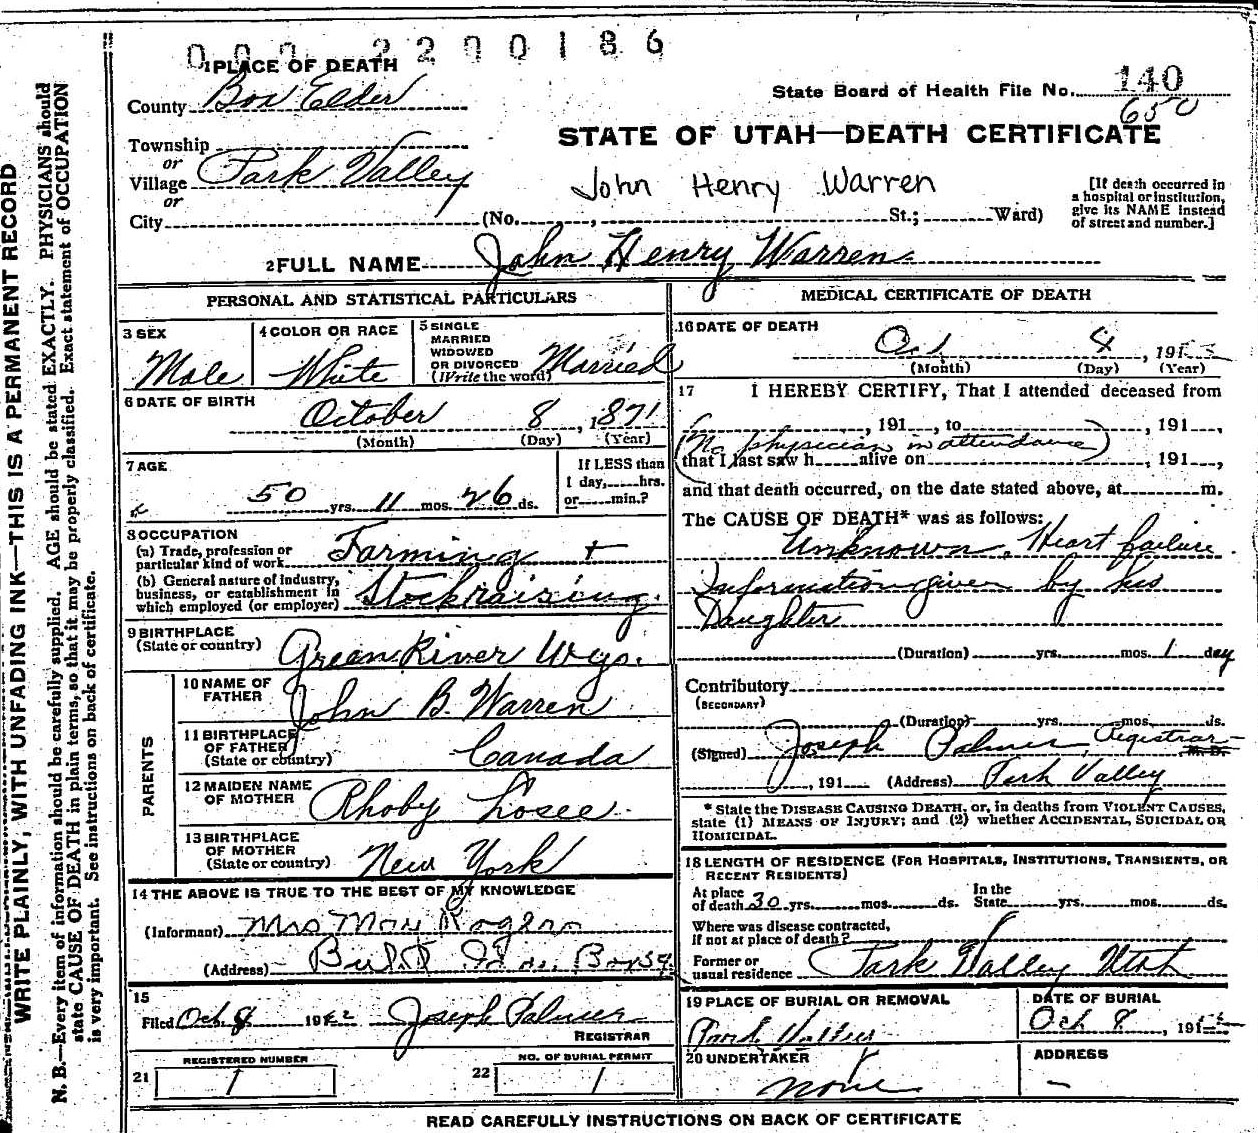 0 0 0 2 2 0 0 1 8 6
1 PLACE OF DEATH
County Box Elder
State Board of Health File No. 140
650
Township
or
Village Park Valley
or
City (No. , St.; Ward)
STATE OF UTAH—DEATH CERTIFICATE
John Henry Warren
[If death occurred in
a hospital or institution,
give its NAME instead
of street and number.]
2 FULL NAME John Henry Warren
PERSONAL AND STATISTICAL PARTICULARS
3 SEX
Male
4 COLOR OR RACE
White
5 SINGLE
MARRIED
WIDOWED
OR DIVORCED
(Write the word)
Married
6 DATE OF BIRTH
October 8, 1871
(Month) (Day) (Year)
7 AGE
50 yrs. 11 mos. 26 ds.
If LESS than
1 day, hrs.
or min.?
8 OCCUPATION
(a) Trade, profession or
particular kind of work Farming +
(b) General nature of industry,
business, or establishment in
which employed (or employer) Stockraising.
9 BIRTHPLACE
(State or country) Green River Wyo.
PARENTS
10 NAME OF
FATHER John B. Warren
11 BIRTHPLACE
OF FATHER
(State or country) Canada
12 MAIDEN NAME
OF MOTHER Rhoby Losee.
13 BIRTHPLACE
OF MOTHER
(State or country) New York
14 THE ABOVE IS TRUE TO THE BEST OF MY KNOWLEDGE
(Informant) Mrs Mary Rogers
(Address)
15
Filed Oct 8 19 Joseph Palmer
REGISTRAR
REGISTERED NUMBER
21 1
NO. OF BURIAL PERMIT
22 1
MEDICAL CERTIFICATE OF DEATH
16 DATE OF DEATH
Oct , 191
(Month) (Day) (Year)
17 I HEREBY CERTIFY, That I attended deceased from
, 191 , to , 191 ,
(No physician in attendance)
that I last saw h alive on , 191 ,
and that death occurred, on the date stated above, at m.
The CAUSE OF DEATH* was as follows:
Unknown, Heart failure.
Information given by his
Daughter
(Duration) yrs. mos. 1 day
Contributory
(SECONDARY)
(Duration) yrs. mos. ds.
(Signed) Joseph Palmer, Registrar M. D.
, 191 (Address) Park Valley
* State the DISEASE CAUSING DEATH, or, in deaths from VIOLENT CAUSES,
state (1) MEANS OF INJURY; and (2) whether ACCIDENTAL, SUICIDAL OR
HOMICIDAL.
18 LENGTH OF RESIDENCE (FOR HOSPITALS, INSTITUTIONS, TRANSIENTS, OR
RECENT RESIDENTS)
At place
of death 30 yrs. mos. ds.
In the
State yrs. mos. ds.
Where was disease contracted,
if not at place of death?
Former or
usual residence Park Valley Utah
19 PLACE OF BURIAL OR REMOVAL
Park Valley
DATE OF BURIAL
Oct , 191
20 UNDERTAKER
none
ADDRESS
—
READ CAREFULLY INSTRUCTIONS ON BACK OF CERTIFICATE
WRITE PLAINLY, WITH UNFADING INK—THIS IS A PERMANENT RECORD
N. B.—Every item of information should be carefully supplied. AGE should be stated EXACTLY. PHYSICIANS should
state CAUSE OF DEATH in plain terms, so that it may be properly classified. Exact statement of OCCUPATION
is very important. See instructions on back of certificate.